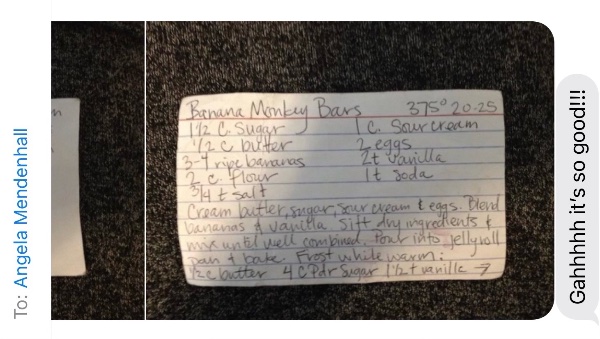 To: Angela Mendenhall
n
Banana Monkey Bars 375° 20-25
1½ C. Sugar 1 C. Sour cream
½ C butter 2 eggs
3-4 ripe bananas 2t vanilla
2 C. flour 1t soda
¾ t salt
Cream butter, sugar, sour cream & eggs. Blend
bananas & vanilla. Sift dry ingredients &
mix until well combined. Pour into jellyroll
pan & bake. Frost while warm:
½ C butter 4 C Pdr Sugar 1½ t vanilla →
Gahhhhh it's so good!!!